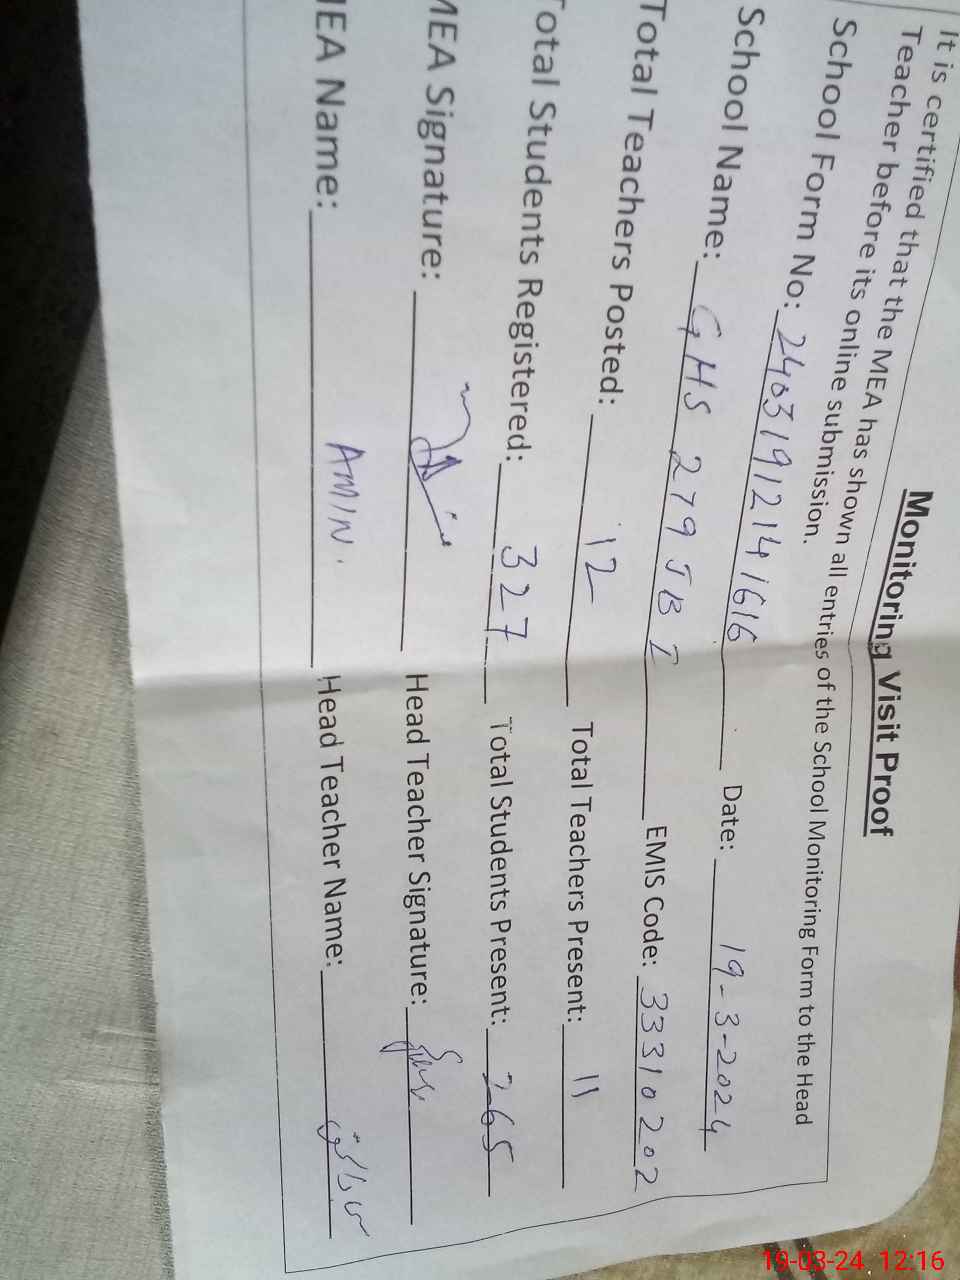 Monitoring Visit Proof
It is certified that the MEA has shown all entries of the School Monitoring Form to the Head
Teacher before its online submission.
School Form No: 2403191214 1616 Date: 19-3-2024
School Name: GHS 279 JB I EMIS Code: 33310202
Total Teachers Posted: 12 Total Teachers Present: 11
Total Students Registered: 327 Total Students Present: 265
MEA Signature: Head Teacher Signature:
MEA Name: AMIN. Head Teacher Name:
19-03-24 12:16